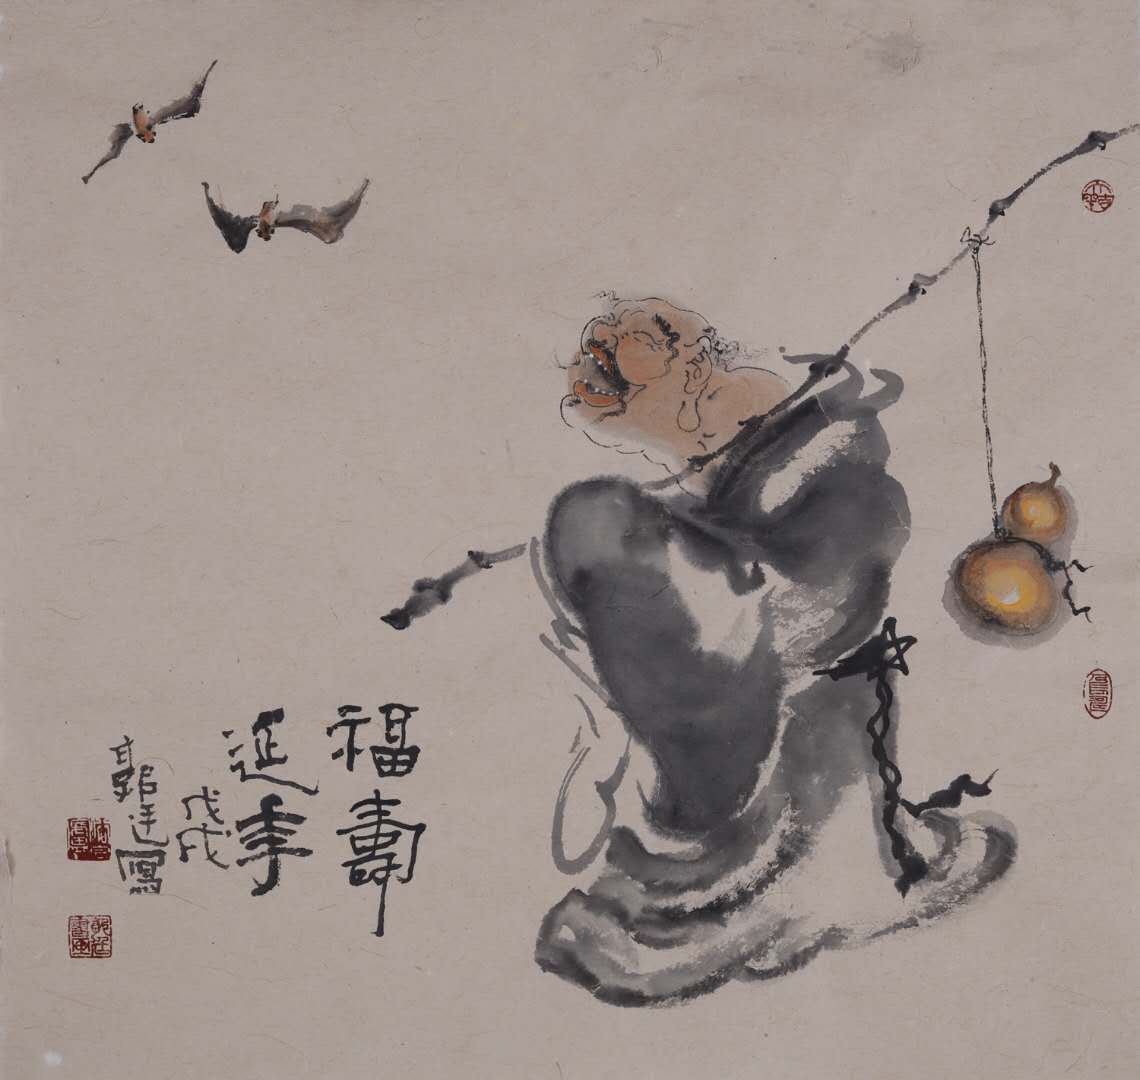 福壽
延年
戊戌
郭寫